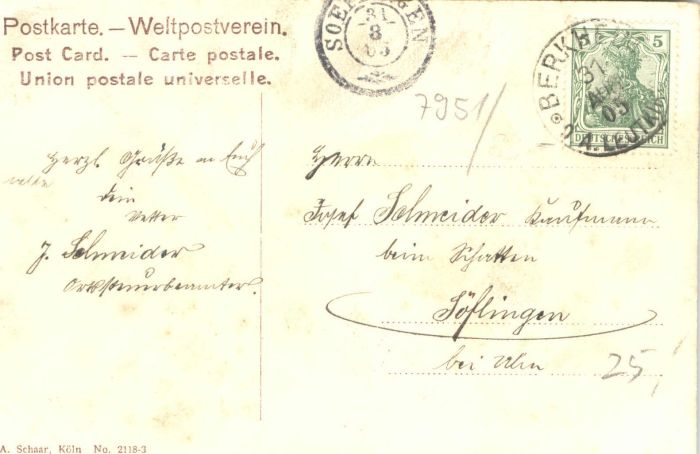 Postkarte. — Weltpostverein.
Post Card. — Carte postale.
Union postale universelle.
31
8
05
7951/
5
BERKH
31
AUG
05
O.A. LEUTK
DEUTSCHES REICH
Herzl. Grüße an Euch
alle
Dein
Vetter
J. Schneider
Ortssteuerbeamter.
Herrn
Josef Schneider Kaufmann
beim Schatten
Söflingen
bei Ulm
25,
A. Schaar, Köln No. 2118-3